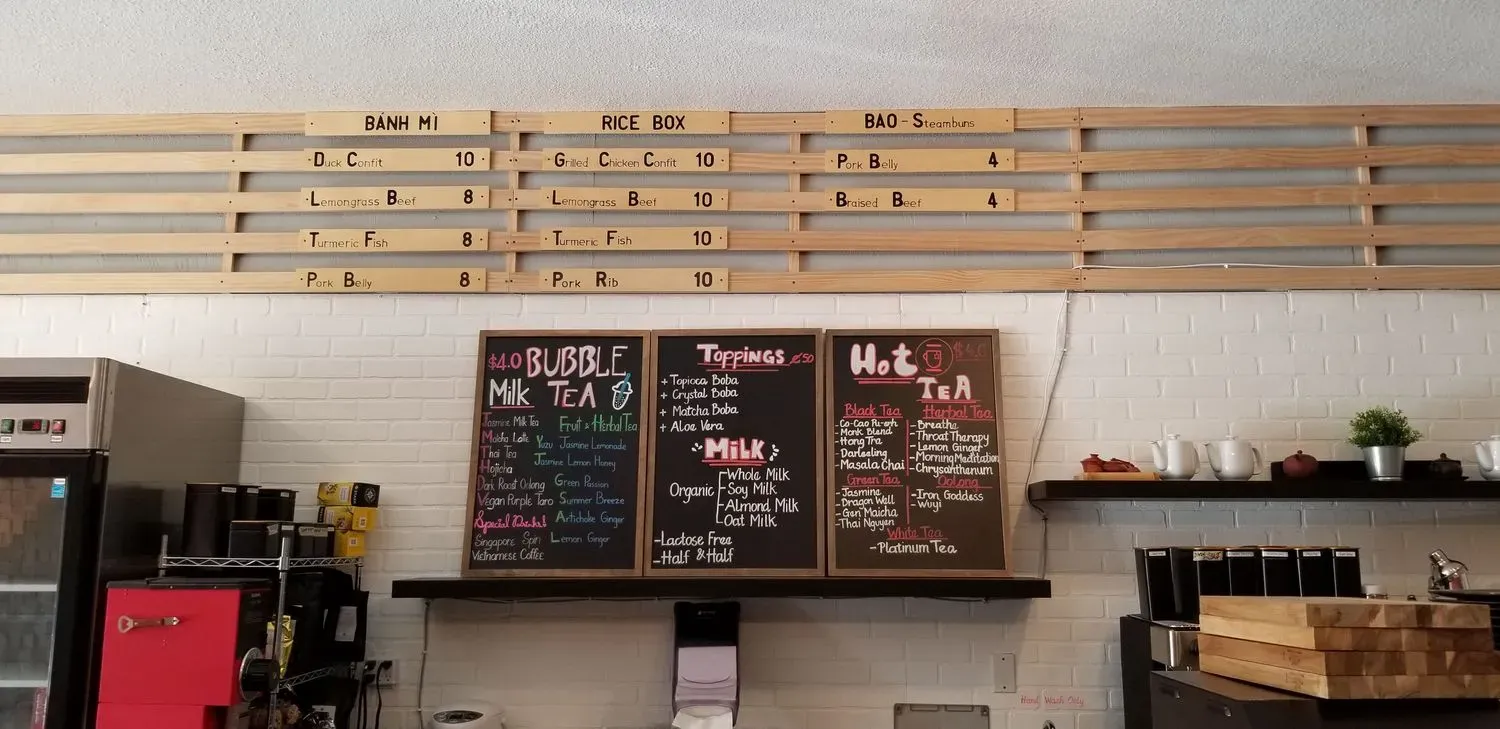 BÁNH MÌ
Duck Confit 10
Lemongrass Beef 8
Turmeric Fish 8
Pork Belly 8
RICE BOX
Grilled Chicken Confit 10
Lemongrass Beef 10
Turmeric Fish 10
Pork Rib 10
BAO - Steambuns
Pork Belly 4
Braised Beef 4
$4.0 BUBBLE
Milk TEA
Jasmine Milk Tea
Matcha Latte
Thai Tea
Hojicha
Dark Roast Oolong
Vegan Purple Taro
Special Drinks!
Singapore Spin
Vietnamese Coffee
Fruit & Herbal Tea
Yuzu Jasmine Lemonade
Jasmine Lemon Honey
Green Passion
Summer Breeze
Artichoke Ginger
Lemon Ginger
Toppings .50
+ Topioca Boba
+ Crystal Boba
+ Matcha Boba
+ Aloe Vera
Milk
Organic
Whole Milk
- Soy Milk
- Almond Milk
Oat Milk
- Lactose Free
- Half & Half
Hot $4.0
TEA
Black Tea
- Monk Blend
- Hong Tra
- Darleeling
- Masala Chai
Green Tea
- Jasmine
- Dragon Well
- Gen Maicha
- Thai Nguyen
Herbal Tea
- Breathe
- Throat Therapy
- Lemon Ginger
- Morning Meditation
- Chrysanthenum
Oolong
- Iron Goddess
- Wuyi
White Tea
- Platinum Tea
Hand Wash Only